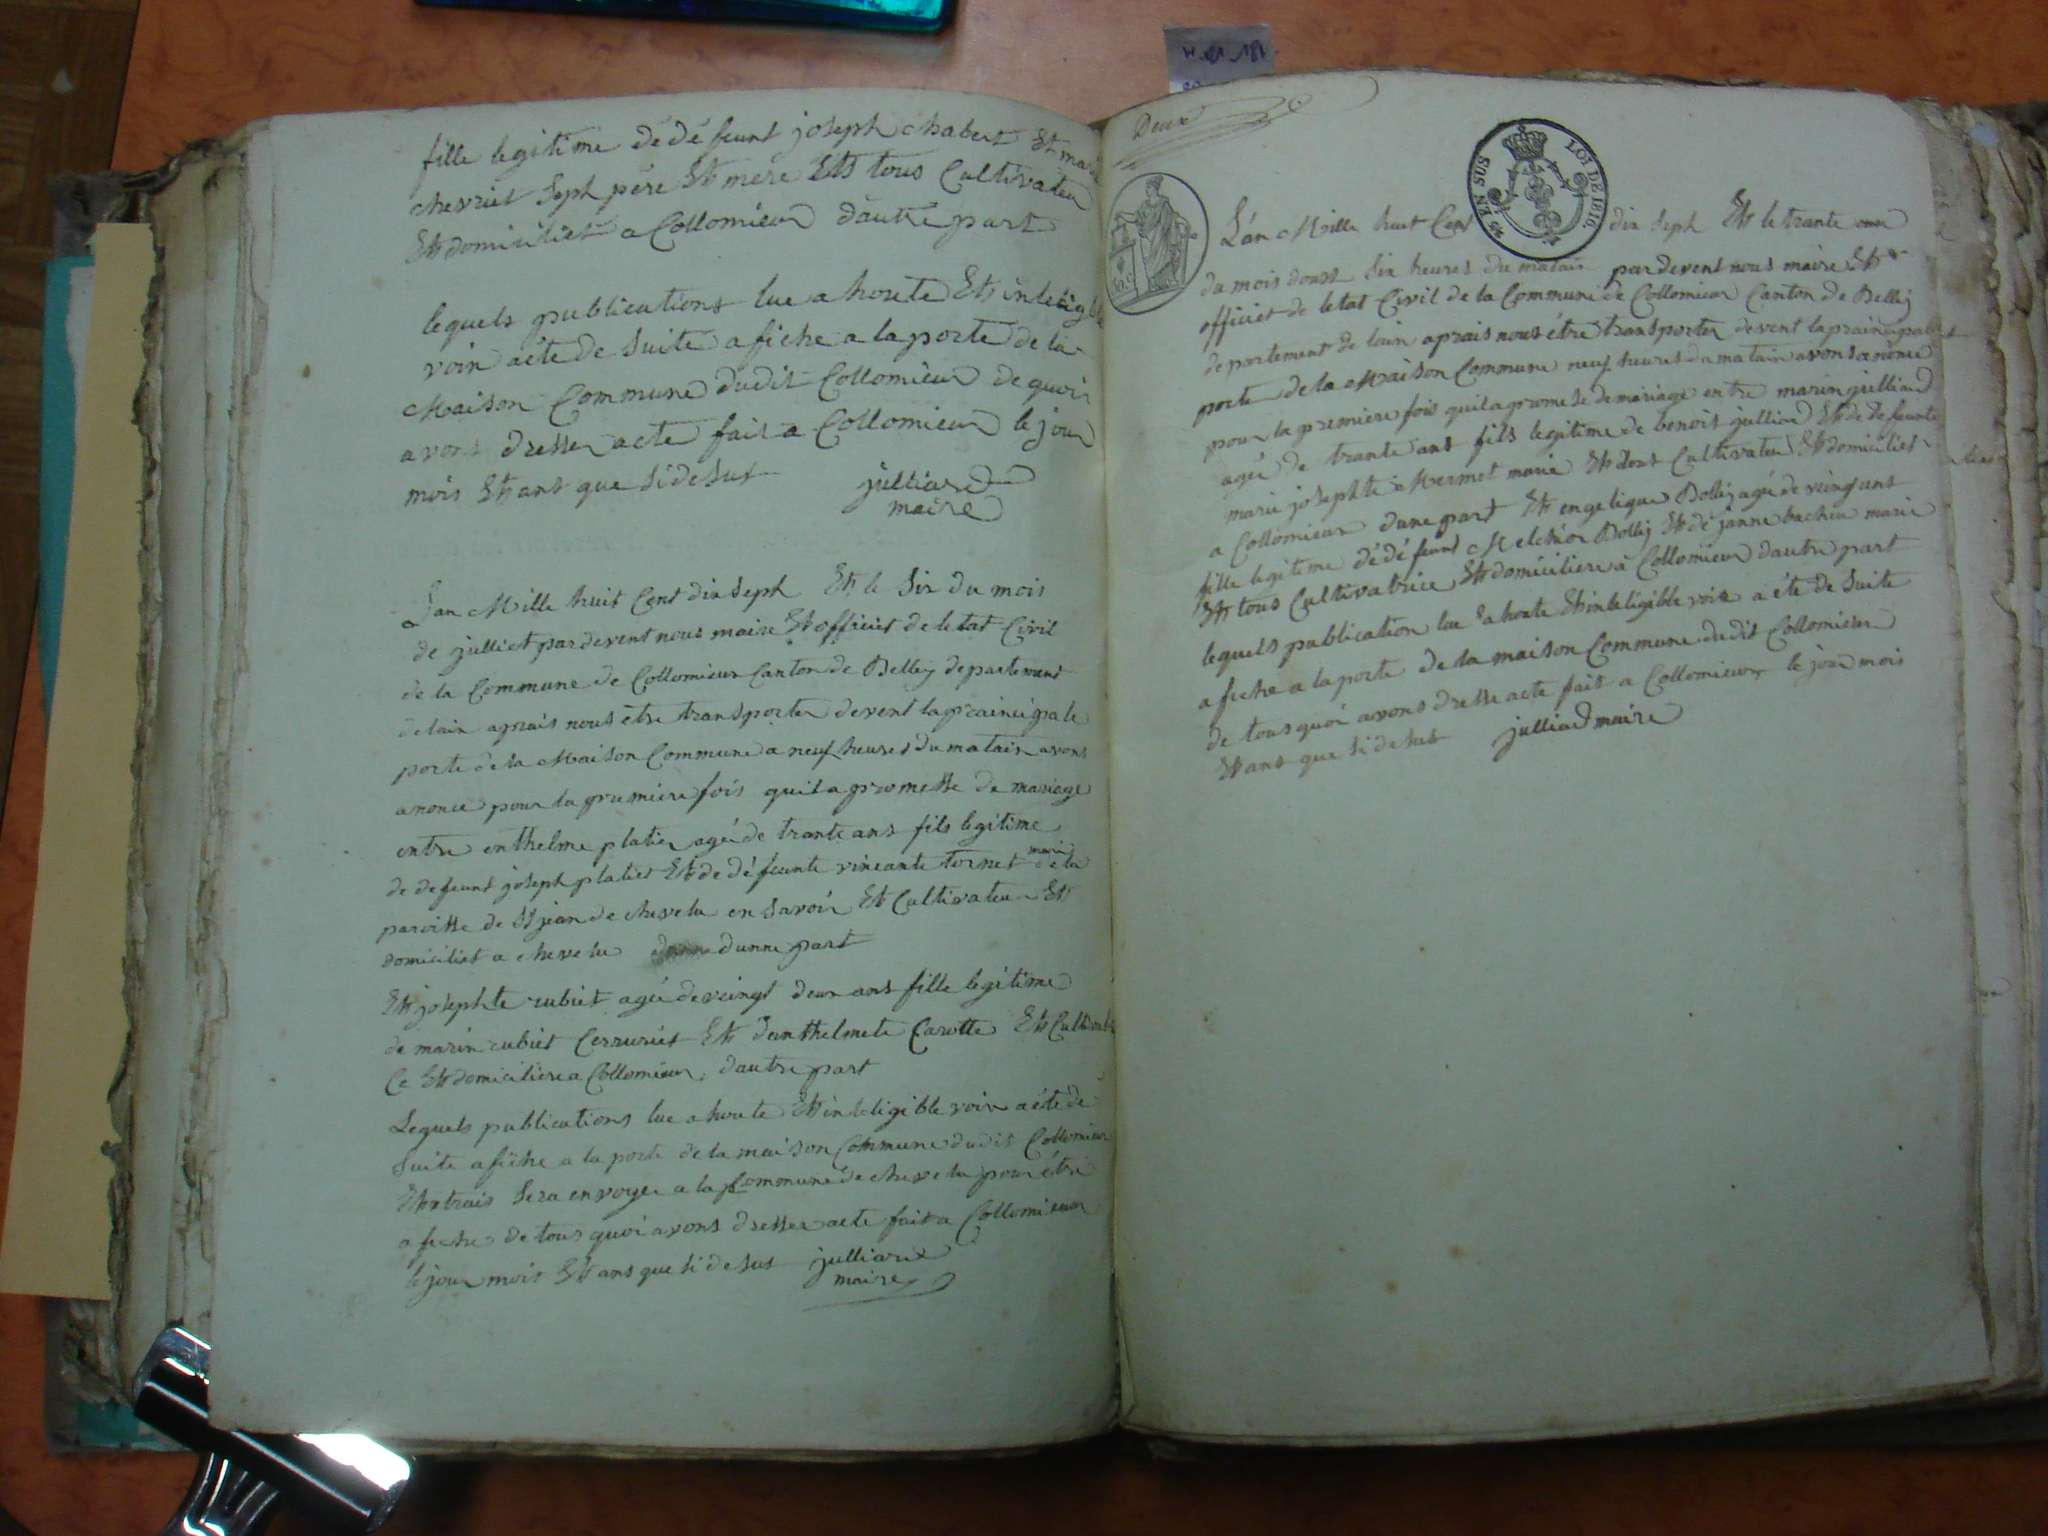 fille legitime dé dé feunt joseph chabert Et
chevriet seph père Et mère Ets tous Cultivateu
Et domiciliet a Collomieux dautre part
lequels publications lue a houte Et inteligible
voin aéte de suite afiche a la porte de la
Maison Commune dudit Collomieux de quoi
avons dresser acte fait a Collomieux le jour
mois Et ans que si de sus
julliard
maire
Lan Mille huit Cent dix seph Et le six du mois
de julliet par devent nous maire Et officiet de letat Civil
de la Commune de Collomieux Canton de Belley departement
delain aprais nous être transporter devent la prainci pale
porte de la Maison Commune a neuf heures du matain avons
anonce pour la premiere fois quil a promesse de mariage
entre enthelme platier agée de trante ans fils legitime
de defeunt joseph platiet Et de défeunte vincante tornet marié de la
paroisse de St jean de chevelu en savoir Et Cultivateur Et
domiciliet a chevelu dunne part
Et josephte rubiet agée de veingt deux ans fille legitime
de marin rubiet Cerruriet Et d'anthelmete Carotte Et Cultivatri
Ce Et domiciliere a Collomieux, dautre part
Lequels publications lue a houte Et inteligible voix a été de
suite afiche a la porte de la maison Commune dudit Collomieux
Extrais sera envoyer a la Commune de chevelu pour être
afiche de tous quoi avons dresser acte fait a Collomieux
le jour mois Et ans que si de sus julliard
maire
Deux
45 EN SUS LOI DE 1816
Lan Mille huit Cent dix seph Et le trante onn
du mois doust six heures du matain par devent nous maire Et
officiet de letat Civil de la Commune de Collomieux Canton de Belley
departement de lain aprais nous être transporter devent la prainci palle
porte de la Maison Commune neuf heures du matain avons anonce
pour la premiere fois quil a promese de mariage entre marin julliard
agée de trante ans fils legitime de benoit julliard Et de defeunte
marie josephte Mermet marié Et tous Cultivateu Et domiciliet
a Collomieux dune part Et engelique Bolley agée de veingt ans
fille legitime dé dé feunt Melchior Bolley Et dé janne bachen marié
Et tous Cultivatrice Et domiciliere à Collomieux dautre part
lequels publication lue a houte Et inteligible voix a éte de suite
afiche a la porte de la maison Commune du dit Collomieux
de tous quoi avons dresse acte fait a Collomieux le jour mois
Et ans que si de sus julliard maire